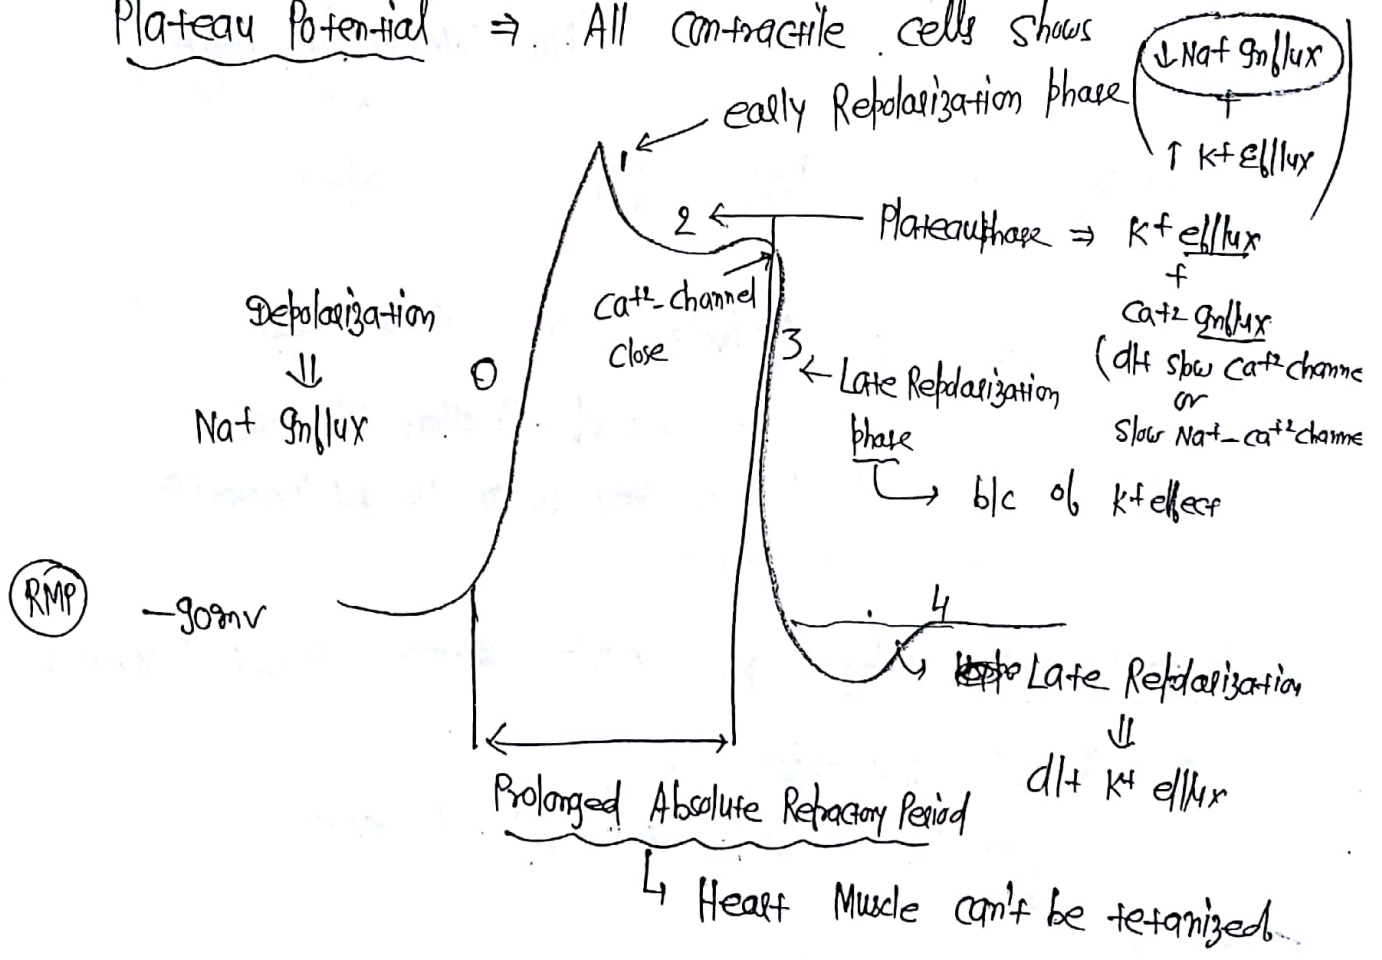 Plateau Potential ⇒ All contractile cells shows
↓ Na+ Influx
+
↑ K+ Efflux
early Repolarization phase
1
2 ← Plateau phase ⇒ K+ efflux
+
Ca+2 Influx
(d/t slow Ca+2 channe
or
slow Na+-Ca+2 channe
Ca+2-channel
close
Depolarization
⇓
Na+ Influx
0
3
← Late Repolarization
phase
↳ b/c of K+ effect
RMP
-90mv
4
Late Repolarization
⇓
d/t K+ efflux
Prolonged Absolute Refractory Period
↳ Heart Muscle can't be tetanized